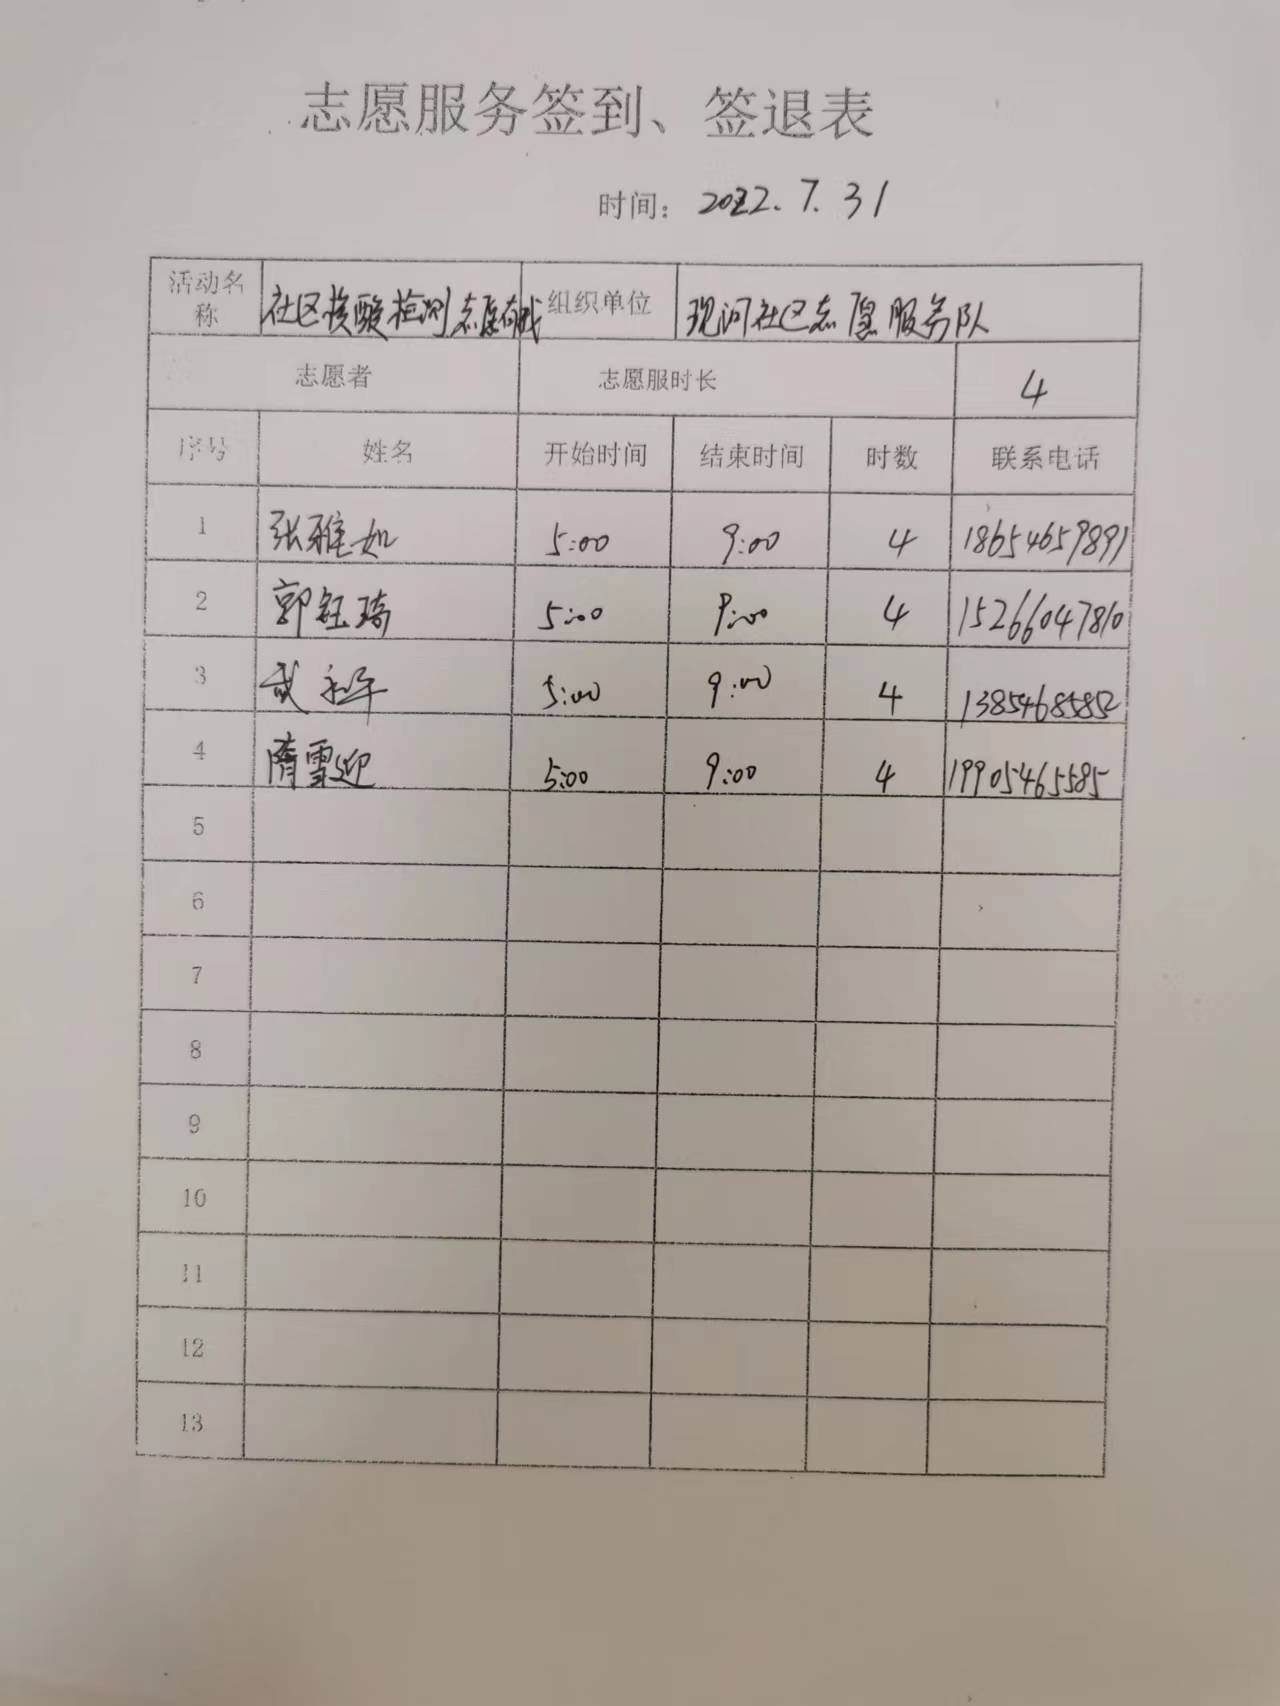 志愿服务签到、签退表
时间： 2022.7.31
活动名称 社区核酸检测志愿 组织单位 现河社区志愿服务队
志愿者 志愿服时长 4
序号 姓名 开始时间 结束时间 时数 联系电话
1 张雅如 5:00 9:00 4 18654659891
2 郭钰琦 5:00 9:00 4 15266047810
3 武 5:00 9:00 4 13854685852
4 隋雪迎 5:00 9:00 4 19905465585
5
6
7
8
9
10
11
12
13